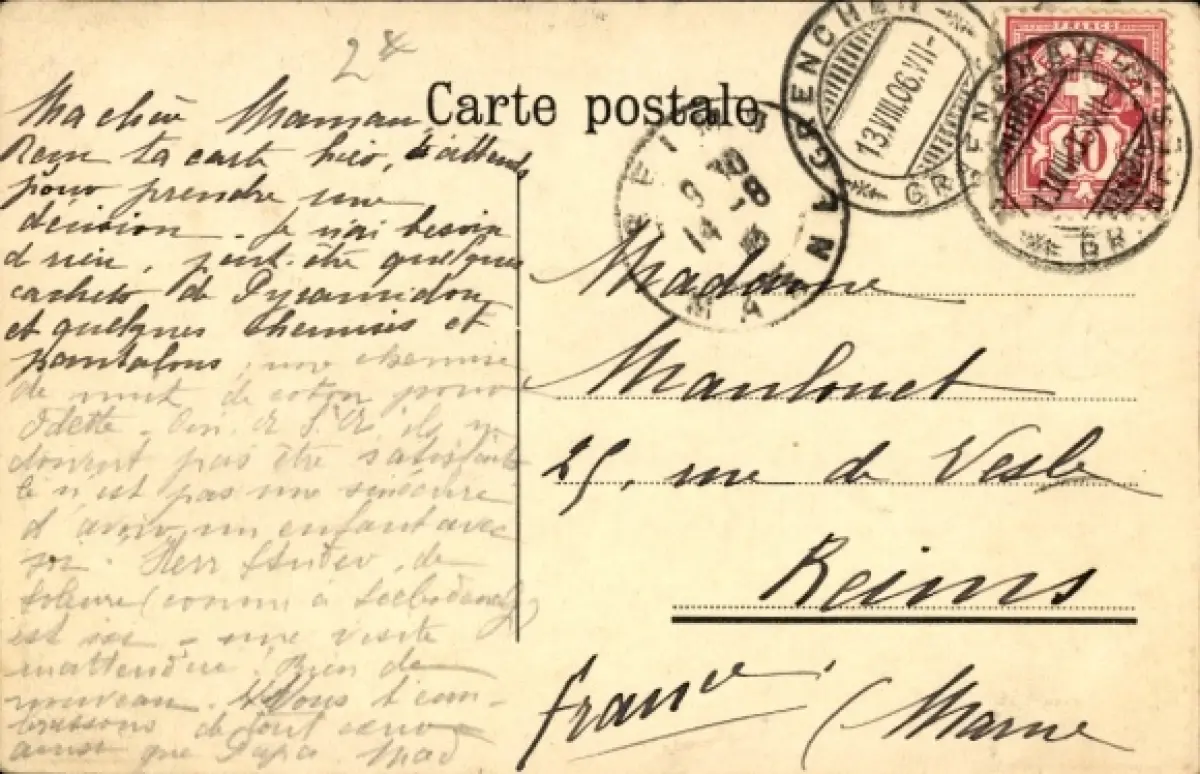 2
Carte postale
FRANCO
10
GRENCHEN
13.VIII.06.VII-
REIMS
9 30
14 -8
MARNE
Ma chère Maman,
Reçu ta carte hier, j'attends
pour prendre une
décision. Je n'ai besoin
de rien, peut-être quelques
cachets de Pyramidon
et quelques chemises et
pantalons, une chemise
de nuit de coton pour
Odette.
doivent pas être satisfaits
ce n'est pas une sinécure
d'avoir un enfant avec
soi. Herr Studer, de
Soleure (connu à
est ici - une visite
inattendue. Rien de
nouveau. Nous t'em-
brassons de tout cœur
ainsi que Papa. Mad
Madame
Maulouet
25, rue de Vesle
Reims
France (Marne